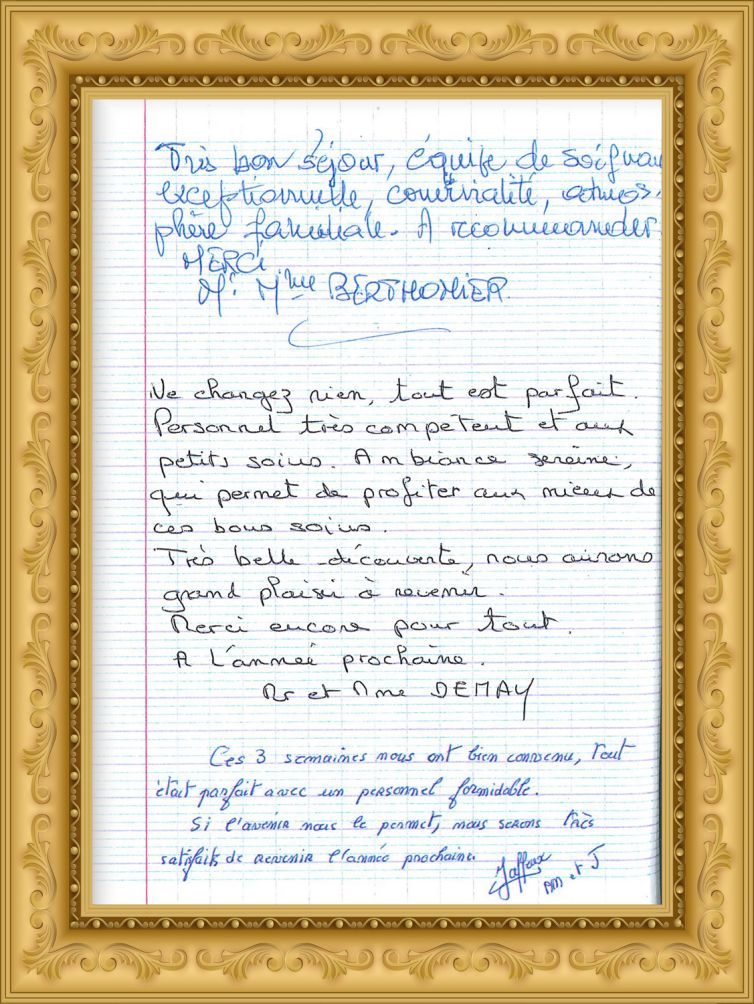 Très bon séjour, équipe de soignan
exceptionnelle, convivialité, atmos-
phère familiale. A recommander.
MERCI
Mr Mme BERTHOMIER.
Ne changez rien, tout est parfait.
Personnel très compétent et aux
petits soins. Ambiance sereine,
qui permet de profiter aux mieux de
ces bons soins.
Très belle découverte, nous aurons
grand plaisir à revenir.
Merci encore pour tout.
A l'année prochaine.
Mr et Mme DEMAY
Ces 3 semaines nous ont bien convenu, Tout
était parfait avec un personnel formidable.
Si l'avenir nous le permet, nous serons très
satisfaits de revenir l'année prochaine.
AM et J